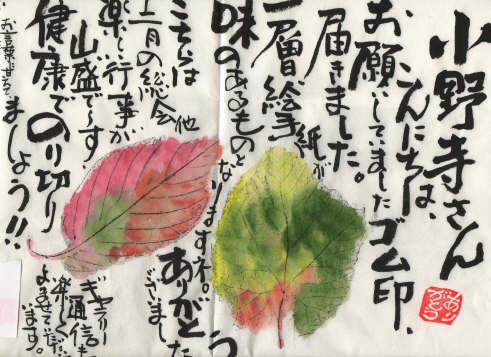 小野寺さん
こんにちは、
お願いしていましたゴム印、
届きました。
一層絵手紙が
味のあるものと
なりますネ。
ありがとう
ございました
こちらは
十二月の総会他
楽しい行事が
山盛で〜す
健康でのり切り
ましょう!!
ギャラリー
通信も
楽しくだ
よませて
います。